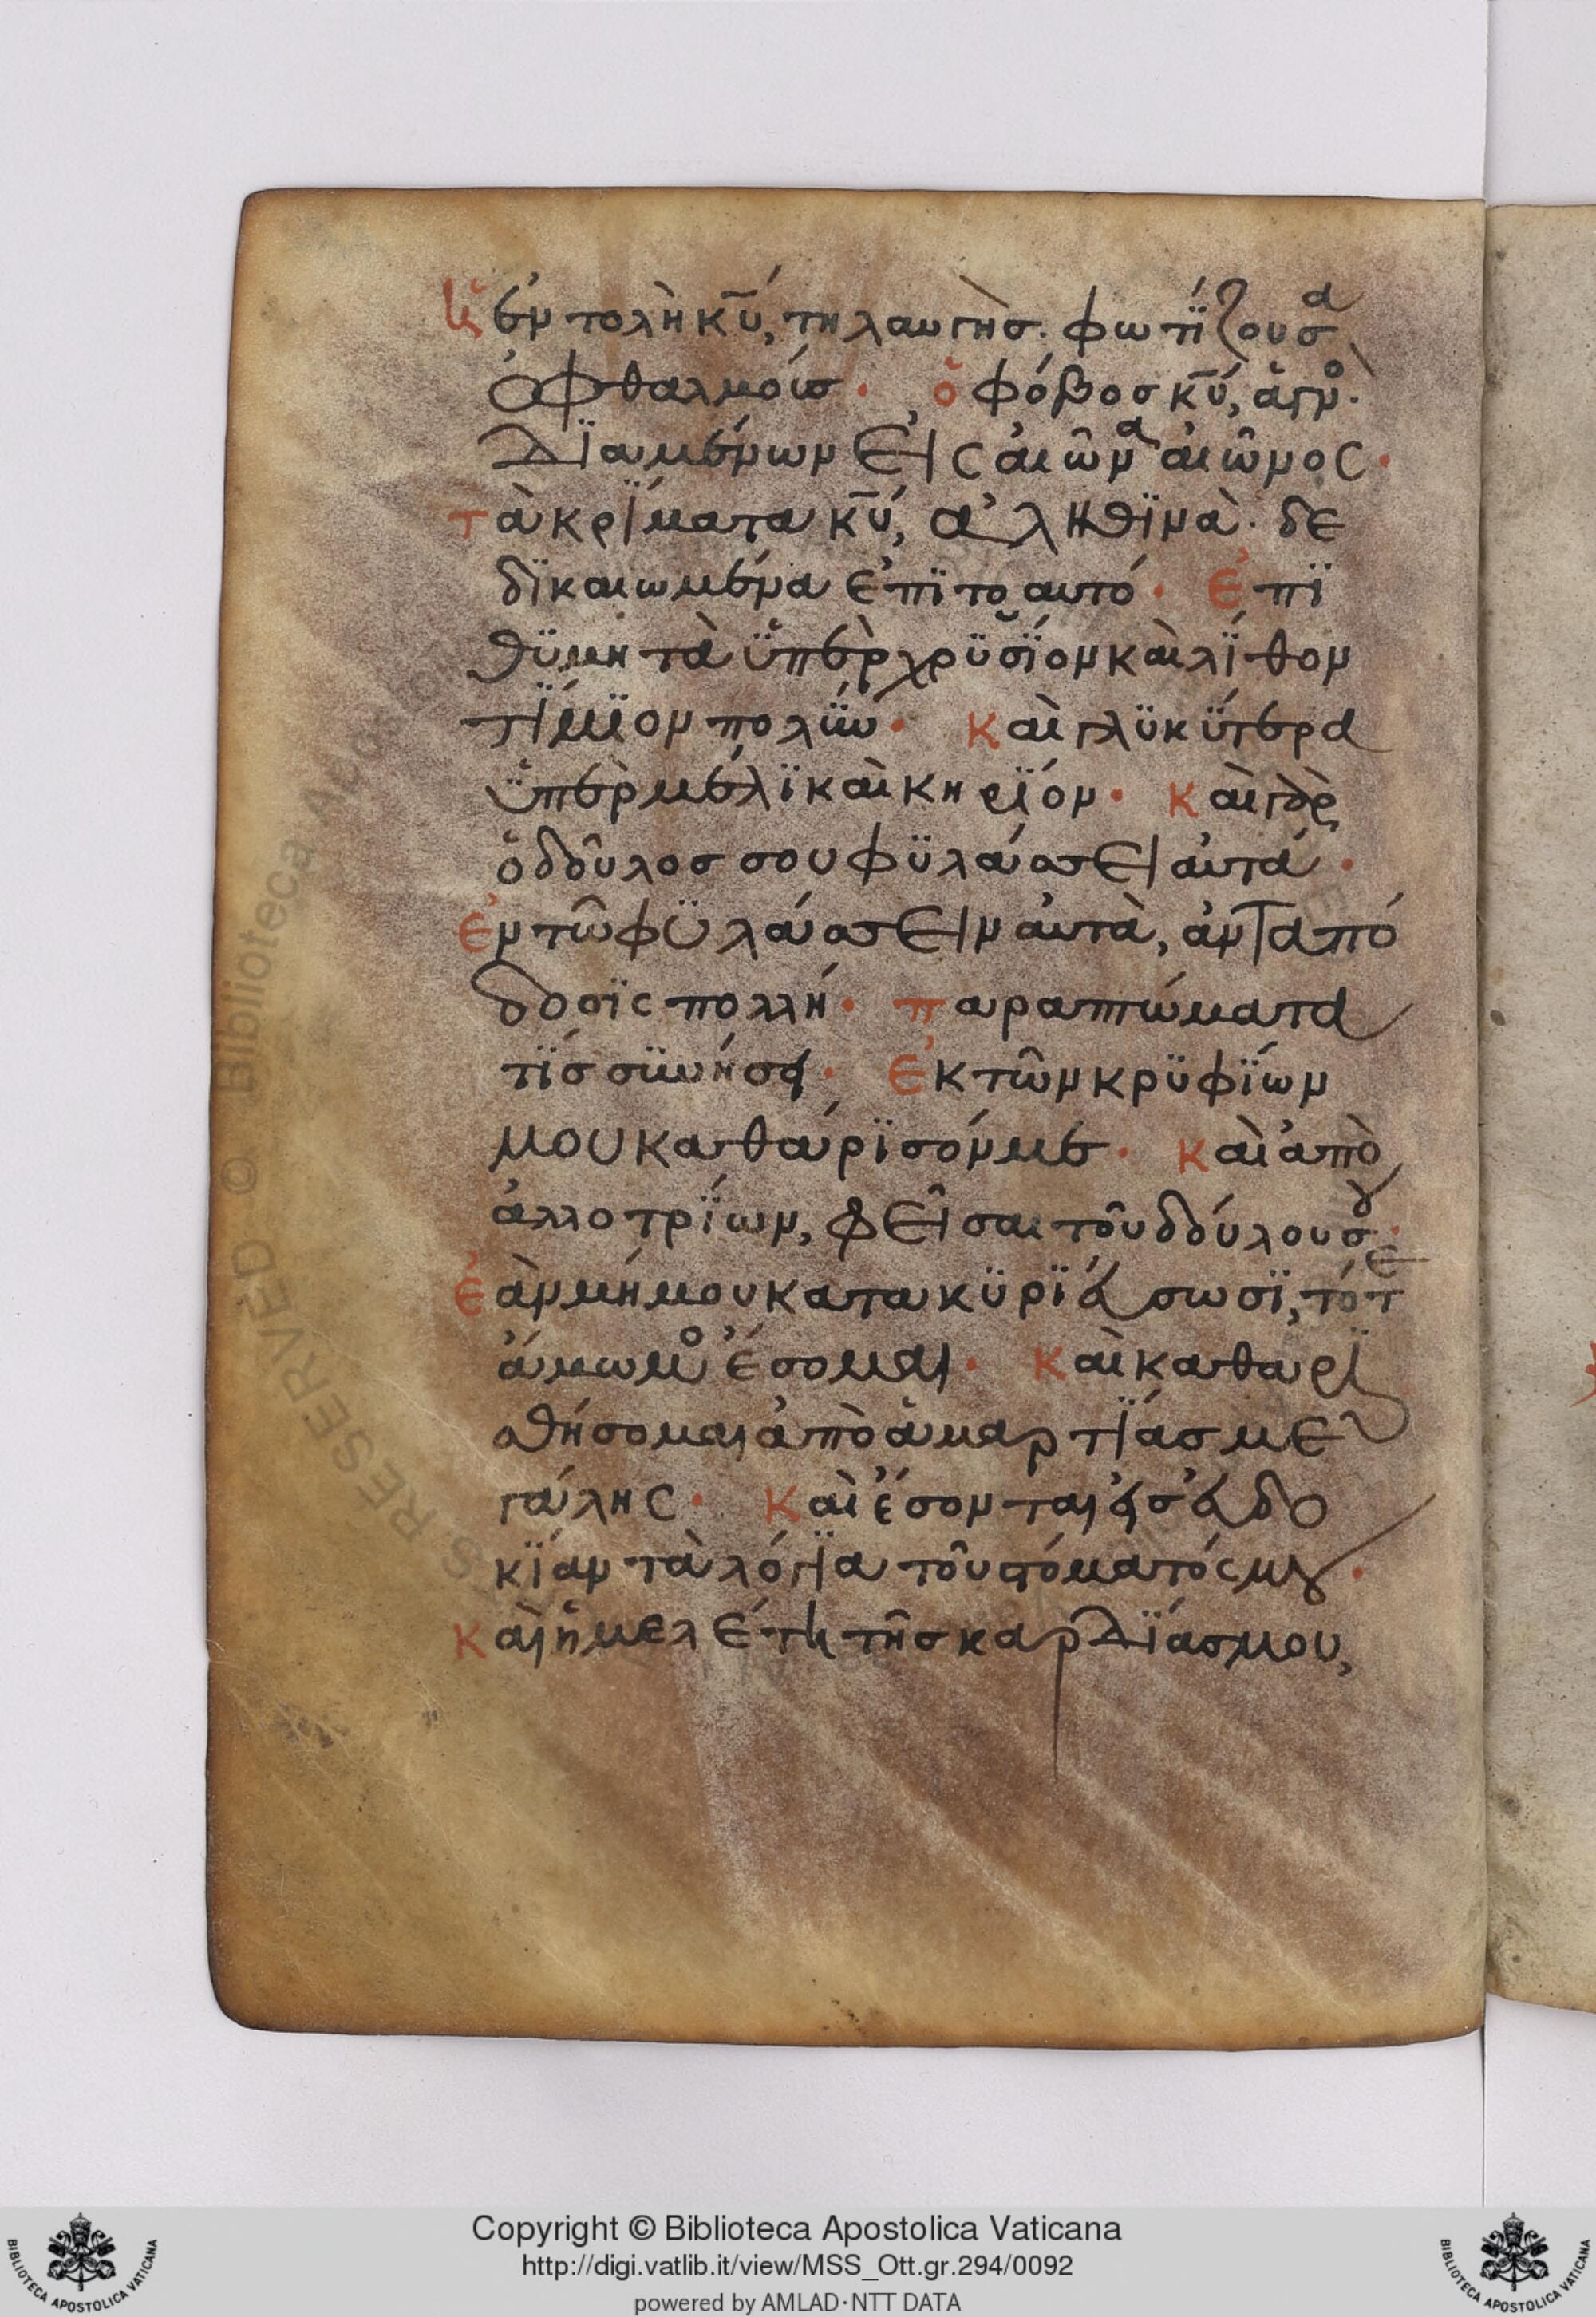 Ἡ ἐντολὴ κ̅υ̅, τηλαυγὴσ. φωτΐζουσα
ὀφθαλμούσ· ὁ φόβοσ κ̅υ̅, ἁγνὸ·
Δϊαμένων εἰς αἰῶνα αἰῶνος·
τὰ κρίματα κ̅υ̅, ἀληθϊνὰ· δε
δϊκαιωμένα ἐπϊτοαυτό· Ἐπϊ
θϋμητὰ ϋπὲρ χρϋσΐον καὶ λΐθον
τΐμϊον πολὺν· Καὶ γλϋκΰτερα
ϋπὲρ μέλϊ καὶ κηρΐον· Καὶ γὰρ
ὁ δοῦλοσ σου φϋλάσσει αὐτά·
Ἐν τῶ φϋλάσσειν αὐτὰ, ἀνταπό
δοσϊς πολλή· παραπτώματα
τΐσ σϋνήσει· Ἐκ τῶν κρϋφΐων
μου καθάρϊσόν με· Καὶ ἀπὸ
ἀλλοτρΐων, φεῖσαι τοῦ δούλου σου·
Ἐὰν μή μου κατακϋρϊεύσωσϊ, τότε
ἄμωμο ἔσομαι· Καὶ καθαρϊ
σθήσομαι ἀπὸ ἁμαρτΐασ με
γάλης· Καὶ ἔσονται εἰσ εὐδο
κΐαν τὰ λόγϊα τοῦ στόματός μου·
Καὶ ἡ μελέτη τῆσ καρδΐασ μου,
BIBLIOTECA APOSTOLICA VATICANA
Copyright © Biblioteca Apostolica Vaticana
http://digi.vatlib.it/view/MSS_Ott.gr.294/0092
powered by AMLAD·NTT DATA
BIBLIOTECA APOSTOLICA VATICANA